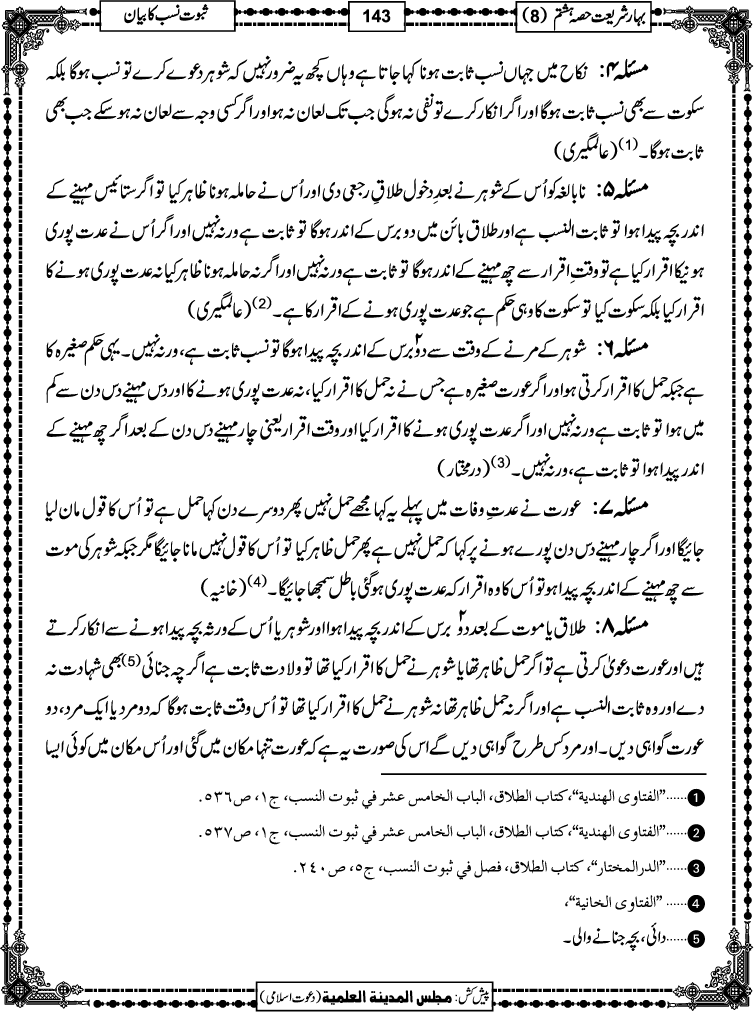 بہارِ شریعت حصہ ہشتم (8)
143
ثبوت نسب کا بیان
مسئلہ ۴: نکاح میں جہاں نسب ثابت ہونا کہا جاتا ہے وہاں کچھ یہ ضرور نہیں کہ شوہر دعوے کرے تو نسب ہوگا بلکہ
سکوت سے بھی نسب ثابت ہوگا اور اگر انکار کرے تو نفی نہ ہوگی جب تک لعان نہ ہو اور اگر کسی وجہ سے لعان نہ ہو سکے جب بھی
ثابت ہوگا۔(1) (عالمگیری)
مسئلہ ۵: نابالغہ کو اُس کے شوہر نے بعدِ دخول طلاقِ رجعی دی اور اُس نے حاملہ ہونا ظاہر کیا تو اگر ستائیس مہینے کے
اندر بچہ پیدا ہوا تو ثابت النسب ہے اور طلاق بائن میں دو برس کے اندر ہوگا تو ثابت ہے ورنہ نہیں اور اگر اُس نے عدت پوری
ہونیکا اقرار کیا ہے تو وقتِ اقرار سے چھ مہینے کے اندر ہوگا تو ثابت ہے ورنہ نہیں اور اگر نہ حاملہ ہونا ظاہر کیا نہ عدت پوری ہونے کا
اقرار کیا بلکہ سکوت کیا تو سکوت کا وہی حکم ہے جو عدت پوری ہونے کے اقرار کا ہے۔(2) (عالمگیری)
مسئلہ ۶: شوہر کے مرنے کے وقت سے دو۲ برس کے اندر بچہ پیدا ہوگا تو نسب ثابت ہے، ورنہ نہیں۔ یہی حکم صغیرہ کا
ہے جبکہ حمل کا اقرار کرتی ہو اور اگر عورت صغیرہ ہے جس نے نہ حمل کا اقرار کیا، نہ عدت پوری ہونے کا اور دس مہینے دس دن سے کم
میں ہوا تو ثابت ہے ورنہ نہیں اور اگر عدت پوری ہونے کا اقرار کیا اور وقت اقرار یعنی چار مہینے دس دن کے بعد اگر چھ مہینے کے
اندر پیدا ہوا تو ثابت ہے، ورنہ نہیں۔(3) (درمختار)
مسئلہ ۷: عورت نے عدتِ وفات میں پہلے یہ کہا مجھے حمل نہیں پھر دوسرے دن کہا حمل ہے تو اُس کا قول مان لیا
جائیگا اور اگر چار مہینے دس دن پورے ہونے پر کہا کہ حمل نہیں ہے پھر حمل ظاہر کیا تو اُس کا قول نہیں مانا جائیگا مگر جبکہ شوہر کی موت
سے چھ مہینے کے اندر بچہ پیدا ہو تو اُس کا وہ اقرار کہ عدت پوری ہوگئی باطل سمجھا جائیگا۔(4) (خانیہ)
مسئلہ ۸: طلاق یا موت کے بعد دو۲ برس کے اندر بچہ پیدا ہوا اور شوہر یا اُس کے ورثہ بچہ پیدا ہونے سے انکار کرتے
ہیں اور عورت دعویٰ کرتی ہے تو اگر حمل ظاہر تھا یا شوہر نے حمل کا اقرار کیا تھا تو ولادت ثابت ہے اگر چہ جنائی(5) بھی شہادت نہ
دے اور وہ ثابت النسب ہے اور اگر نہ حمل ظاہر تھا نہ شوہر نے حمل کا اقرار کیا تھا تو اُس وقت ثابت ہوگا کہ دو مرد یا ایک مرد، دو
عورت گواہی دیں۔ اور مرد کس طرح گواہی دیں گے اس کی صورت یہ ہے کہ عورت تنہا مکان میں گئی اور اُس مکان میں کوئی ایسا
1 ......"الفتاوی الهندية"، كتاب الطلاق، الباب الخامس عشر في ثبوت النسب، ج١، ص٥٣٦.
2 ......"الفتاوی الهندية"، كتاب الطلاق، الباب الخامس عشر في ثبوت النسب، ج١، ص٥٣٧.
3 ......"الدرالمختار"، كتاب الطلاق، فصل في ثبوت النسب، ج٥، ص٢٤٠.
4 ......"الفتاوى الخانية"،
5 ......دائی، بچہ جنانے والی۔
پیش کش: مجلس المدينة العلمية (دعوت اسلامی)